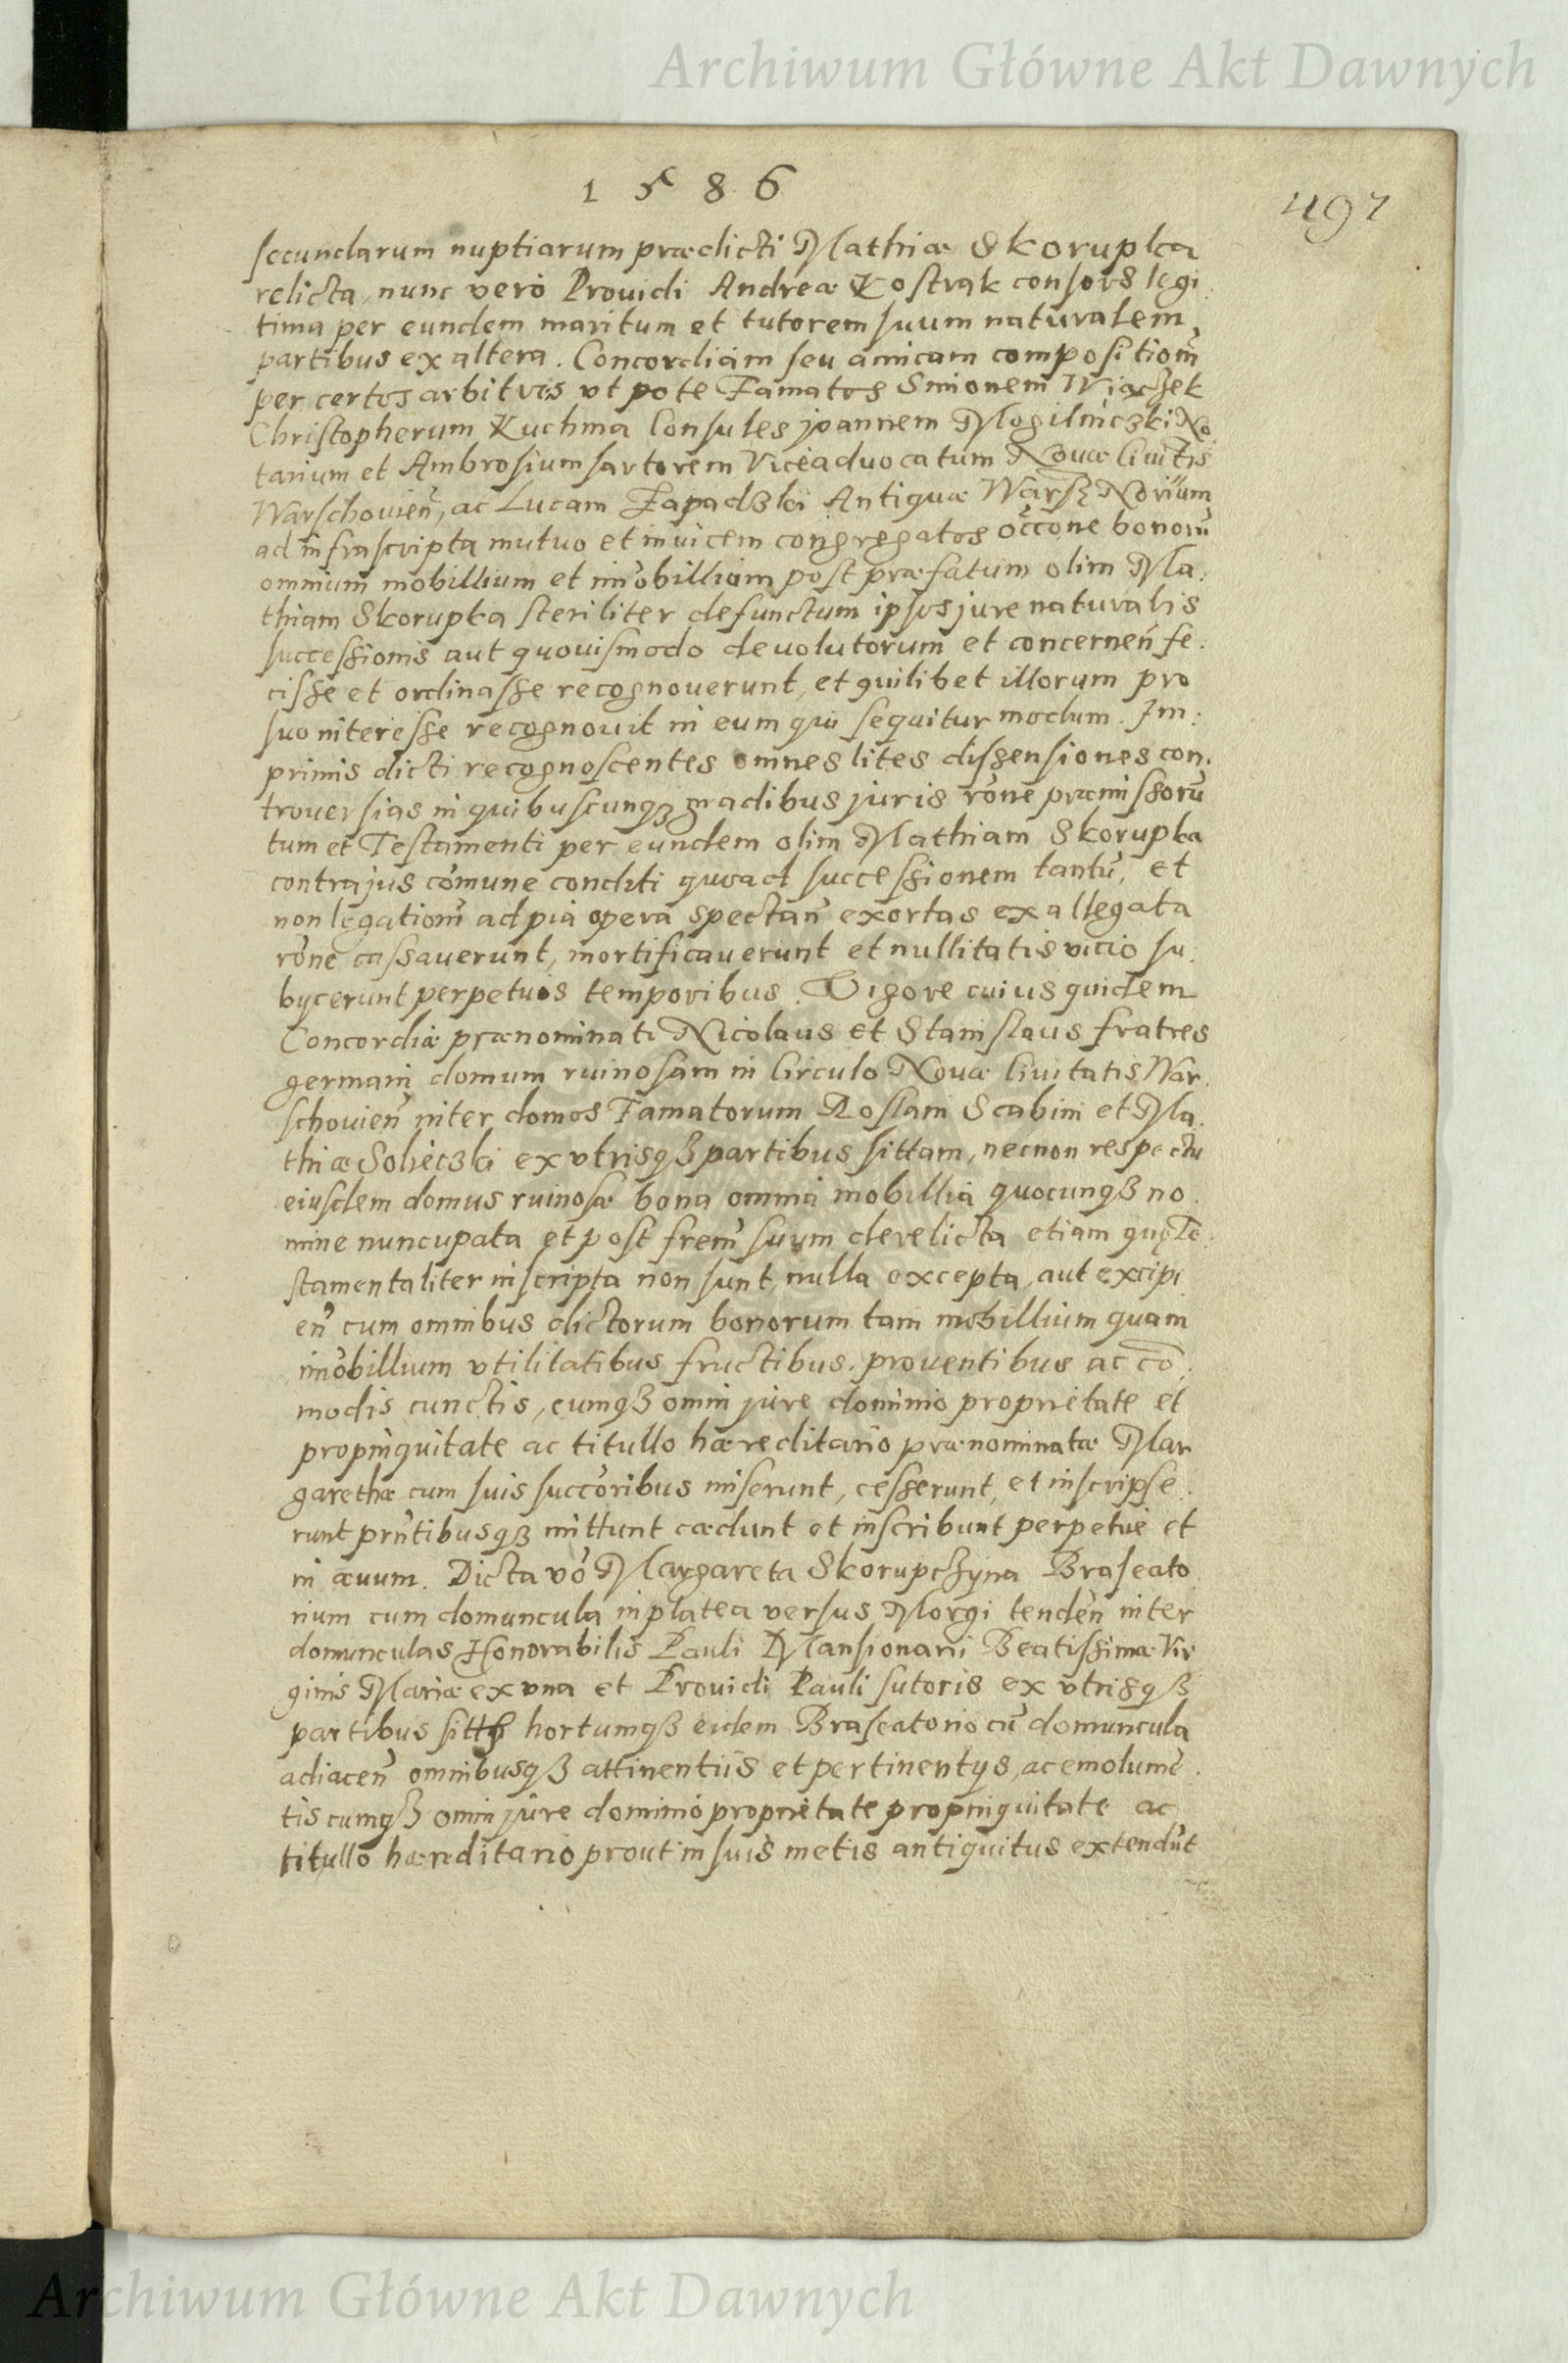 Archiwum Główne Akt Dawnych
1586
497
secundarum nuptiarum prædicti Mathiæ Skorupka
relicta, nunc vero Prouidi Andreæ Kostrak consors legi
tima per eundem maritum et tutorem suum naturalem
partibus ex altera. Concordiam seu amicam compositiom̃
per certos arbitros vt pote Famatos Simonem Wiączek
Christopherum Kuchma Consules joannem Mogilniczki No
tarium et Ambrosium sartorem Viceaduocatum Nouæ Ciuit̃tis
Warschouien̄, ac Lucam Zapadzki Antiquæ Warsz Norium
ad infrascripta mutuo et inuicem congregatos occ̃one bonorũ
omnium mobillium et im̃obillium post præfatum olim Ma:
thiam Skorupka steriliter defunctum ipsos jure naturalis
successionis aut quouismodo deuolutorum et concernen̄ fe:
cisse et ordinasse recognouerunt, et quilibet illorum pro
suo interesse recognouit in eum qui sequitur modum. Im:
primis dicti recognoscentes omnes lites dissensiones con.
trouersias in quibuscunqȝ gradibus juris rõne præmissorũ
tum et Testamenti per eundem olim Mathiam Skorupka
contra jus com̃une conditi quoad successionem tantũ, et
non legationũ ad pia opera spectan̄ exortas ex allegata
rõne cassauerunt, mortificauerunt et nullitatis vicio su
bycerunt perpetuis temporibus. Vigore cuius quidem
Concordiæ prænominati Nicolaus et Stanislaus fratres
germani domum ruinosam in Circulo Nouæ Ciuitatis War
schouien̄ inter domos Famatorum Roslani Scabini et Ma
thiæ Soliecȝki ex vtrisqȝ partibus sittam, necnon respectu
eiusdem domus ruinosæ bona omnia mobillia quocunqȝ no
mine nuncupata et post frem̃ suum derelicta etiam quę Te
stamentaliter inscripta non sunt, nulla excepta, aut excipi
en̄ cum omnibus dictorum bonorum tam mobillium quam
im̃obillium vtilitatibus fructibus, prouentibus ac cõ
modis cunctis, cumqȝ omni jure dominio proprietate et
propinquitate ac titullo hæreditario prænominatæ Mar
garethæ cum suis succ̃oribus miserunt, cesserunt, et inscripse
runt prñtibusqȝ mittunt cædunt et inscribunt perpetue et
in æuum. Dicta võ Margareta Skorupczyna Braseato
rium cum domuncula in platea versus Morgi tenden̄ inter
domunculas Honorabilis Pauli Mansionarii Beatissimæ Vir
ginis Mariæ ex vna et Prouidi Pauli sutoris ex vtrisqȝ
partibus hortumqȝ eidem Braseatorio cũ domuncula
adiacen̄ omnibusqȝ attinentiis et pertinentys, ac emolumẽ
tis cumqȝ omni jure dominio proprietate propinquitate ac
titullo hæreditario prout in suis metis antiquitus extendũt
Archiwum Główne Akt Dawnych